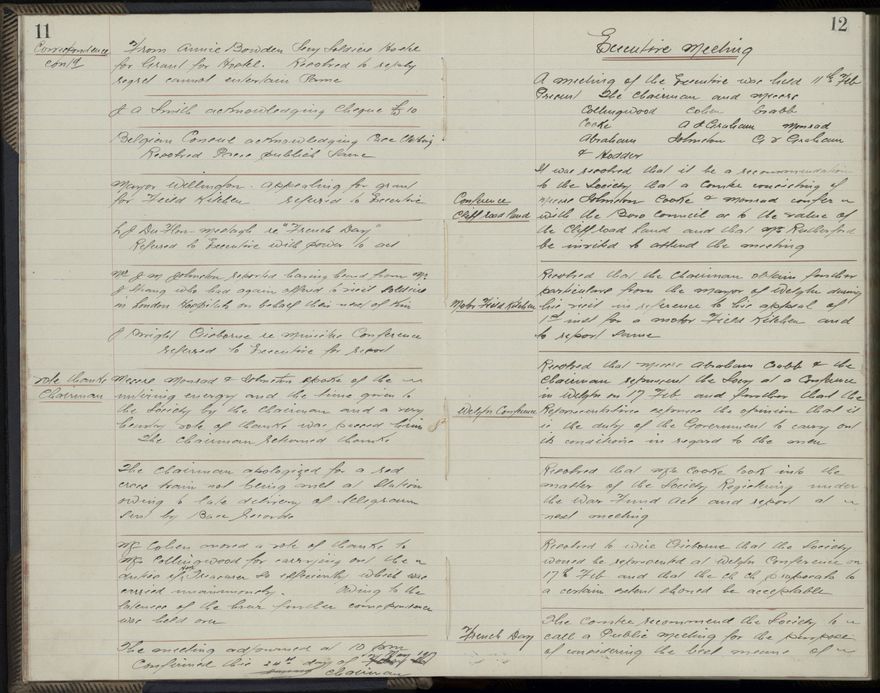 11
Correspondence
contd
From Annie Bowden Secy Soldiers Hostel
for Grant for Hostel. Resolved to reply
regret cannot entertain same
J A Smith acknowledging Cheque £10
Belgian Consul acknowledging Case Clothing
Resolved Press publish same
Mayor Wellington. appealing for grant
for Field Kitchen referred to Executive
re "French Day"
Referred to Executive with power to act
Mr J M Johnston reported having heard from Mr
J who had again offered to visit soldiers
in London Hospitals on behalf their next of kin
J Bright Gisborne re Ministers Conference
referred to Executive for report
vote thanks
Chairman
Messrs Monrad & Johnston spoke of the un
untiring energy and the time given to
the Society by the Chairman and a very
hearty vote of thanks was passed him
The Chairman returned thanks
The Chairman apologized for a red
cross train not being met at Station
owing to late delivery of telegram
sent by Base Records
Mr Cohen moved a vote of thanks to
Mr Collingwood for carrying out the
duties of Hon Treasurer so efficiently which was
carried unanimously. Owing to the
lateness of the hour further correspondence
was held over
The meeting adjourned at 10 pm
Confirmed this 24th day of May 1917
Chairman
12
Executive Meeting
A meeting of the Executive was held 11th Feb
Present The Chairman and Messrs
Collingwood Cohen Crabb
Cooke A J Graham Monrad
Abraham Johnston G J Graham
& Hodder
Conference
Cliff road land
It was resolved that it be a recommendation
to the Society that a Comtee consisting of
Messrs Johnston Cooke & Monrad confer
with the Boro Council as to the value of
the Cliff road land and that Mr Rutherford
be invited to attend the meeting
Motor Field Kitchen
Resolved that the Chairman obtain further
particulars from the Mayor of Welgtn during
his visit in reference to his appeal of
1st inst for a motor Field Kitchen and
to report same
Welgtn Conference
Resolved that Messrs Abraham Crabb & the
Chairman represent the Socy at a Conference
in Welgtn on 17 Feb and further that the
Representatives express the opinion that it
is the duty of the Government to carry out
its conditions in regard to the men
Resolved that Mr Cooke look into the
matter of the Society Registering under
the War Fund Act and report at
next meeting
Resolved to wire Gisborne that the Society
would be represented at Welgtn Conference on
17th Feb and that the Ch Ch proposals to
a certain extent should be acceptable
French Day
The Comtee recommend the Society to
call a Public Meeting for the purpose
of considering the best means of